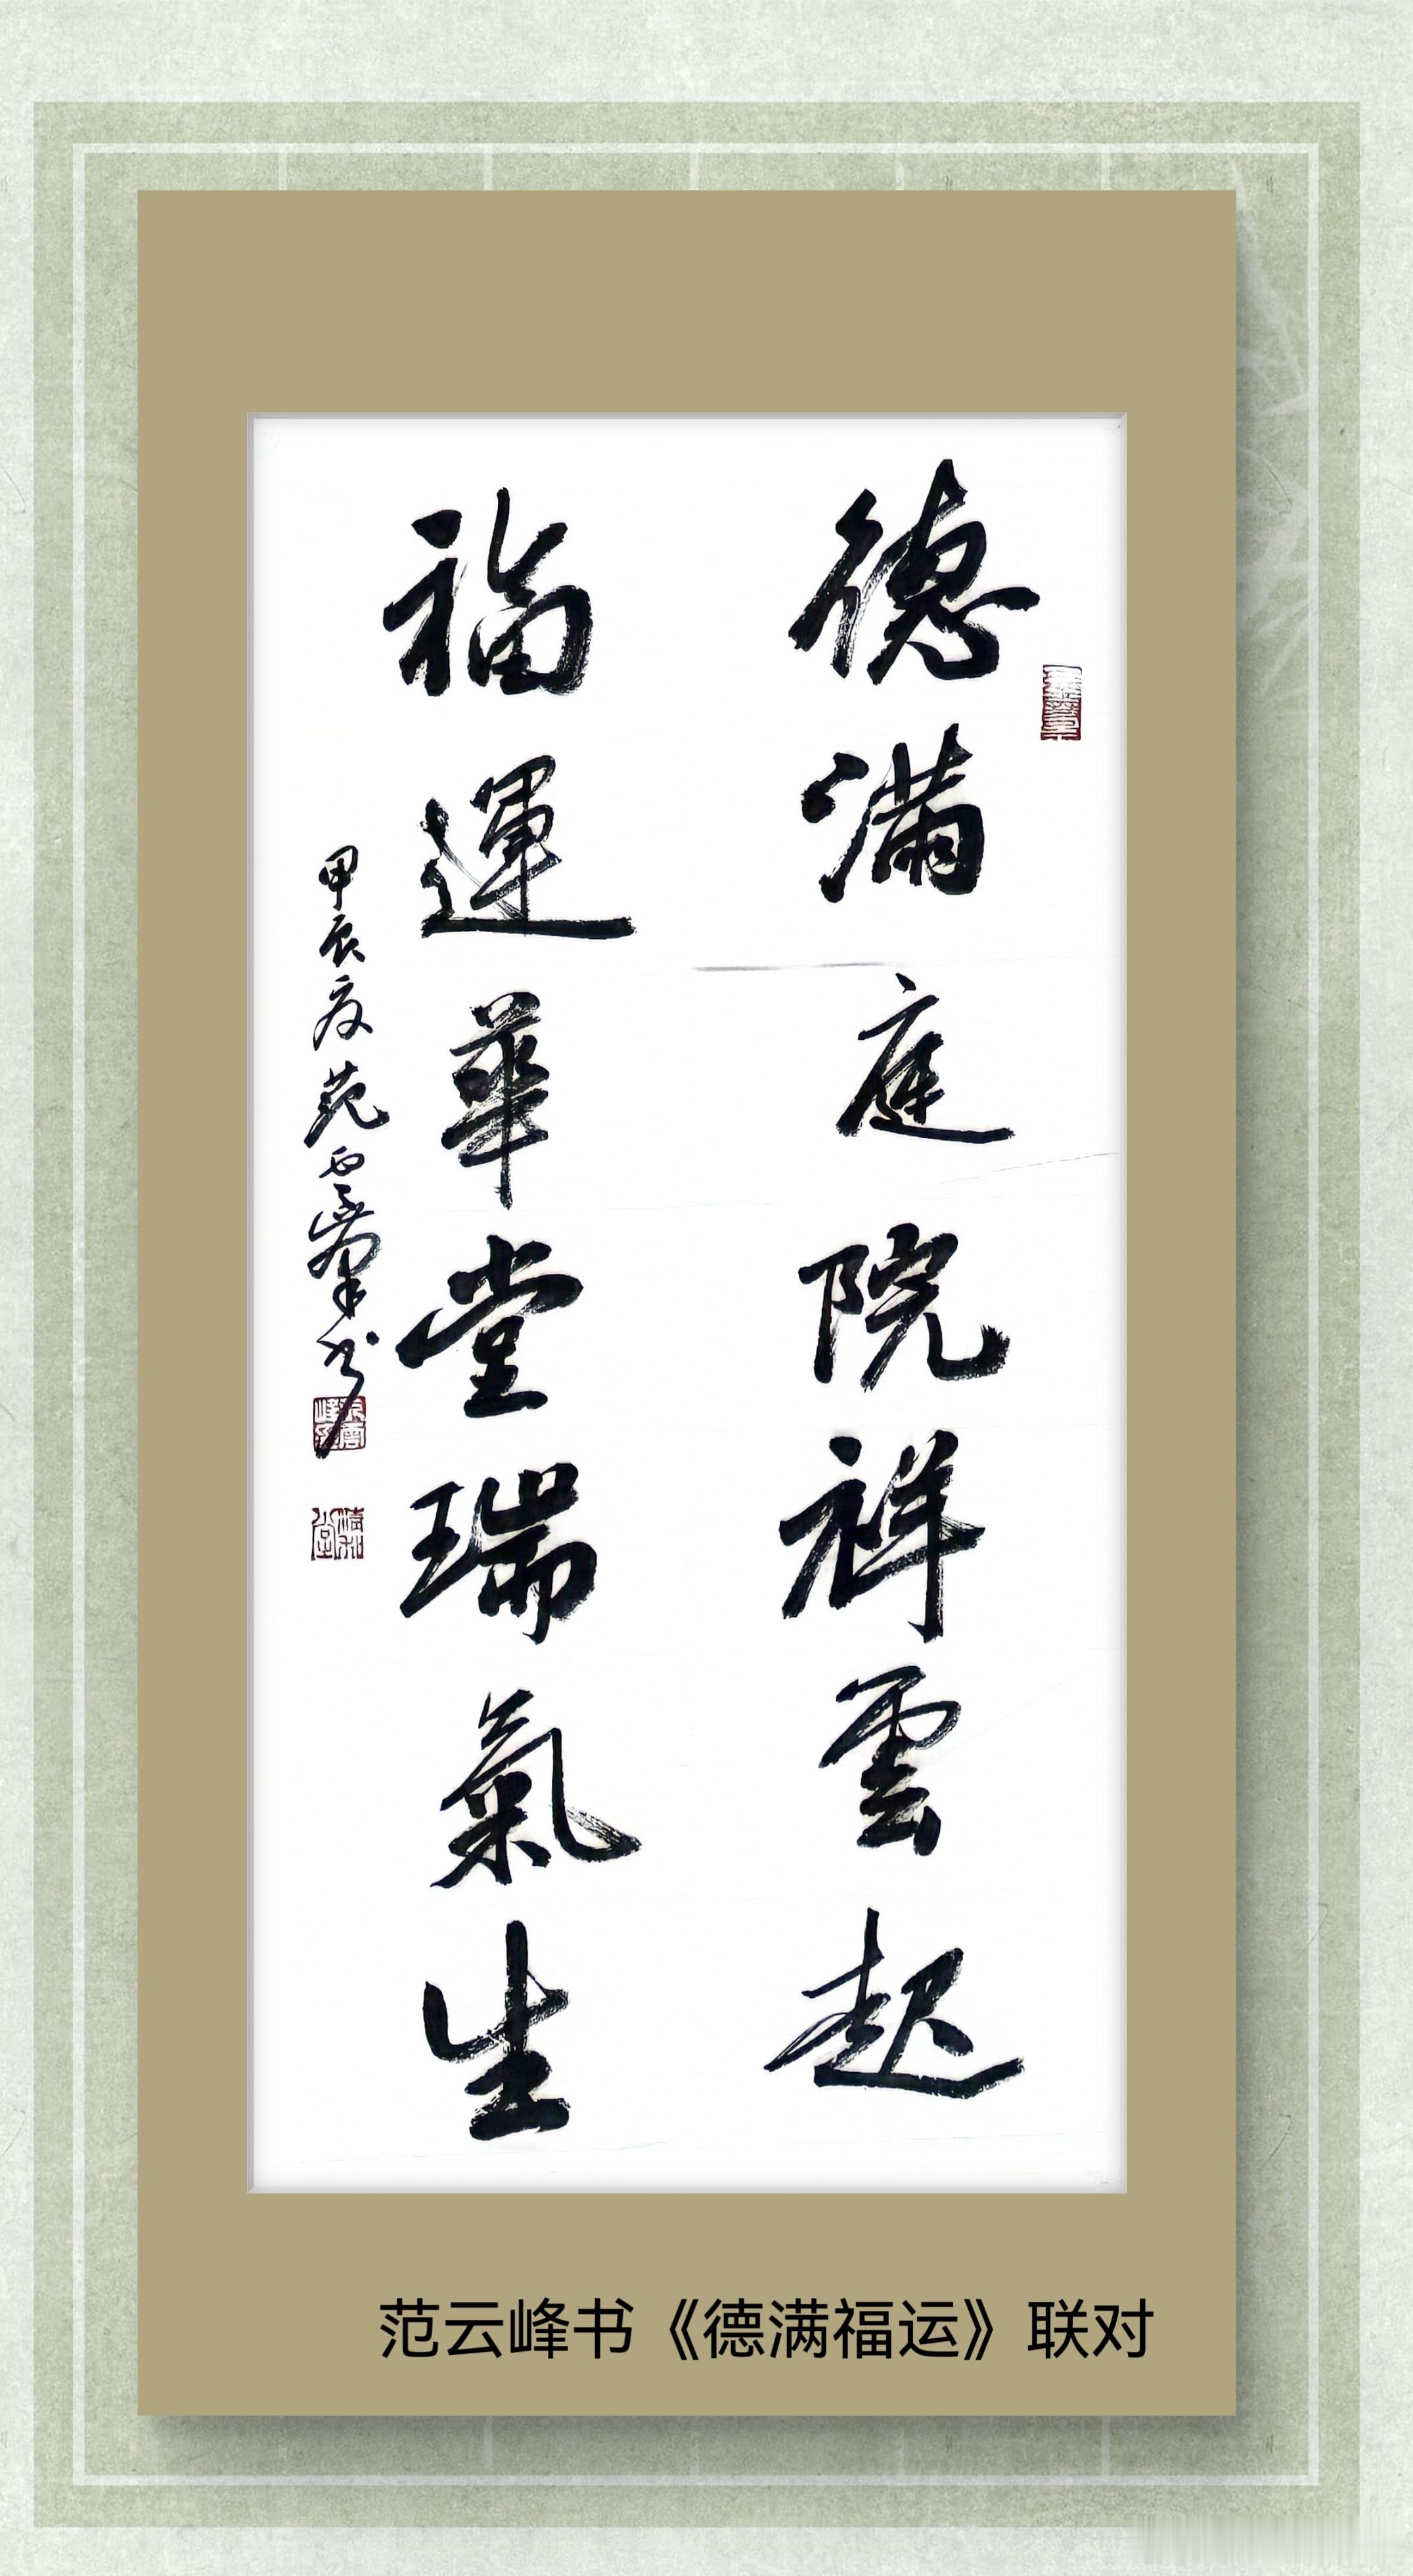 德滿庭院祥雲起
福運華堂瑞氣生
甲辰夏范雲峯书
范云峰书《德满福运》联对